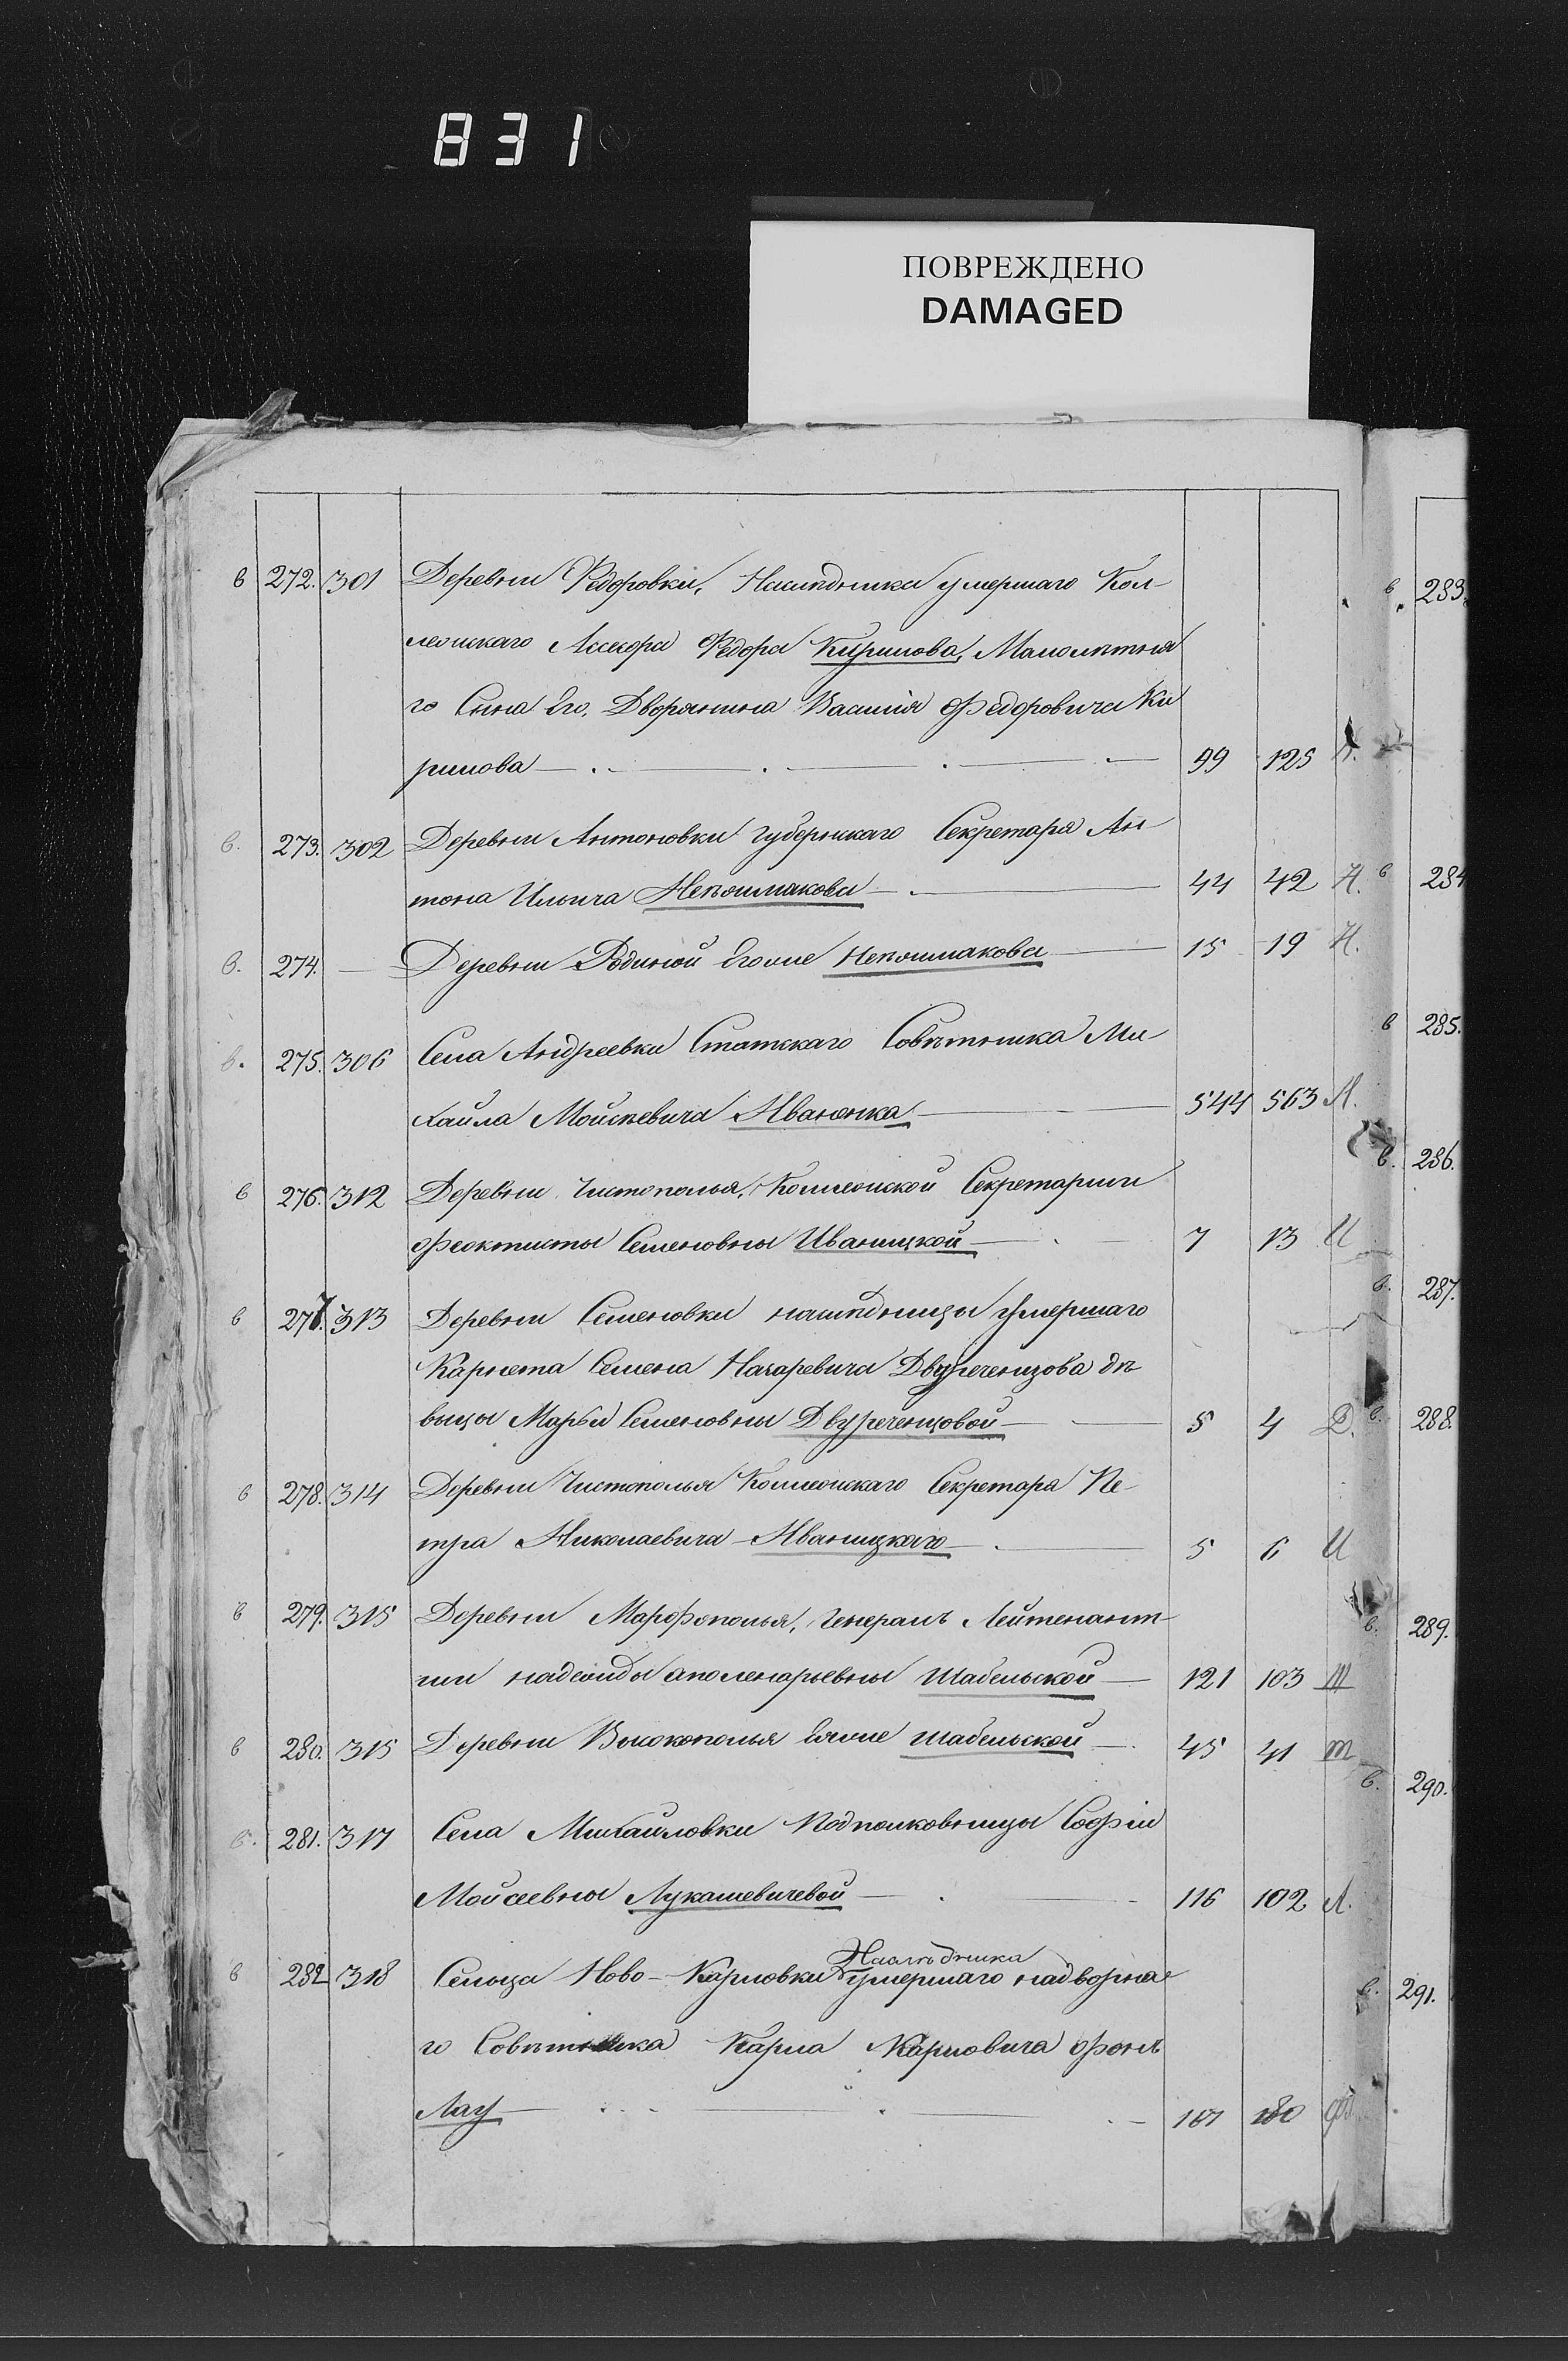 831
ПОВРЕЖДЕНО
DAMAGED
в 272. 301 Деревни Федоровки, Наслѣдника умершаго Кол-
лежскаго Ассесора Федора Кирилова, Малолѣтня
го Сына Его, Дворянина Василія Федоровича Ки
рилова — 99 125
в. 273. 302 Деревни Антоновки Губернскаго Секретаря Ан-
тона Ильича Непошмакова — 44 42 Н.
в. 274. — Деревни Родиной Егоже Непошмакова — 15 19 Н.
в. 275. 306 Села Андреевки Статскаго Совѣтника Ми-
хайла Мойсѣевича Иваненка — 544 563
в 276. 312 Деревни Чистополья, Коллежской Секретарши
Феоктисты Семеновны Иваницкой — 7 13 И
в 277. 313 Деревни Семеновки наслѣдницы умершаго
Карнета Семена Назаревича Двуреченцова дѣ
вицы Марьи Семеновны Двуреченцовой — 5 4 Д.
в 278. 314 Деревни Чистополья Коллежскаго Секретаря Пе-
тра Николаевича Иваницкаго — 5 6 И
в 279. 315 Деревни Марфополья, Генералъ Лейтенант-
ши надежды аполенарьевны Шабельской — 121 103 Ш
в 280. 315 Деревни Высокополья Еяже шабельской — 45 41 ш
в. 281. 317 Села Михайловки Подполковницы Софіи
Мойсеевны Лукашевичевой — 116 102 Л.
Наслѣдника
в 282 318 Сельца Ново-Карловки умершаго надворна-
го Совѣтника Карла Карловича фонъ
Лау — 167 180 Ф
в 283.
в 284
в 285.
в. 286.
в. 287.
в. 288.
в. 289.
в. 290.
в. 291.